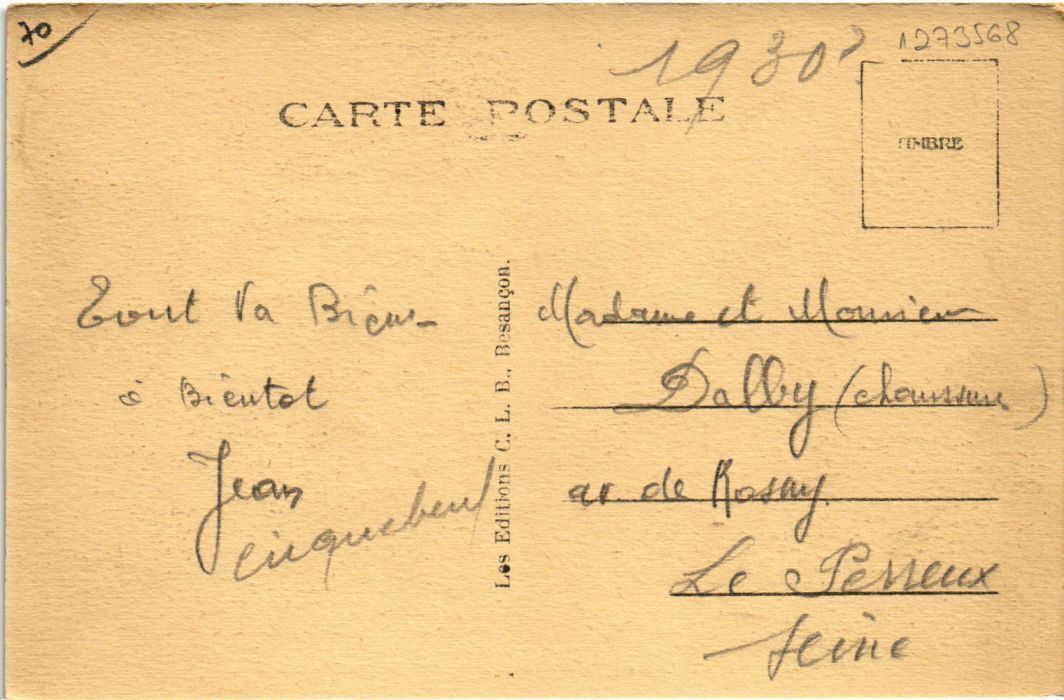 70
1930?
1273568
CARTE POSTALE
TIMBRE
Tout Va Bien
à Bientot
Jean
Les Editions C. L. B., Besançon.
Madame et Monsieur
Dalby (chaussure)
av. de Rosny
Le Perreux
Seine